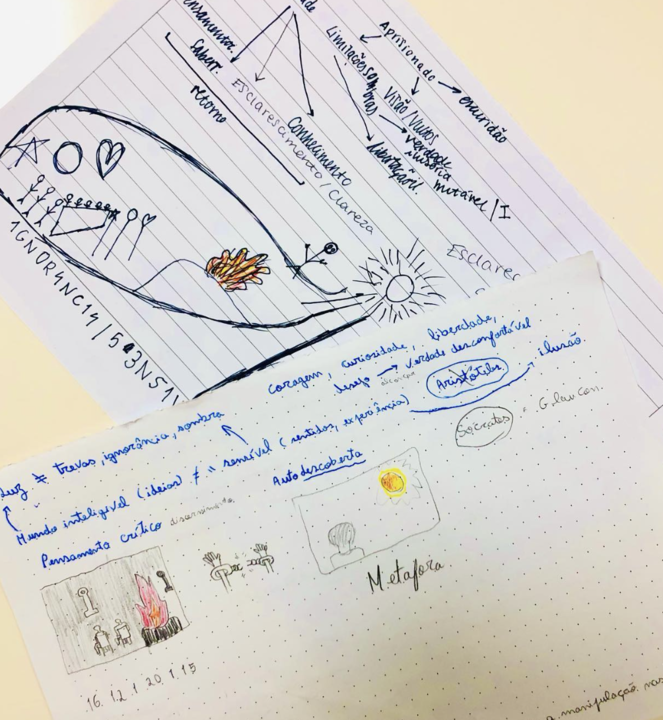 Saber.
retorno
Esclarescimento / Clareza
Conhecimento
Aprisionado
Limitações
Visão / Vultos
escuridão
verdade
ilusória
mutável / I
1GNOR4NC14 / 5
Esclare
coragem, curiosidade, liberdade,
desejo → verdade desconfortável
Aristóteles
ilusão.
Luz ≠ trevas, ignorância, sombra
Mundo inteligível (ideias) ≠ " sensível (sentidos, experiência)
Sócrates e Glaucon.
Pensamento crítico
Autodescoberta
Metáfora
16. 12. 1. 20. 1. 15
a manipulação nas